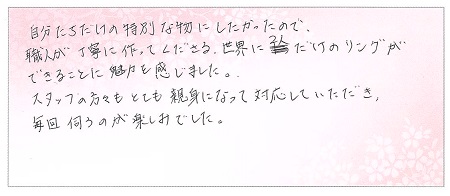 自分たちだけの特別な物にしたかったので、
職人が丁寧に作ってくださる、世界に1つだけのリングが
できることに魅力を感じました。
スタッフの方々もとても親身になって対応していただき、
毎回伺うのが楽しみでした。